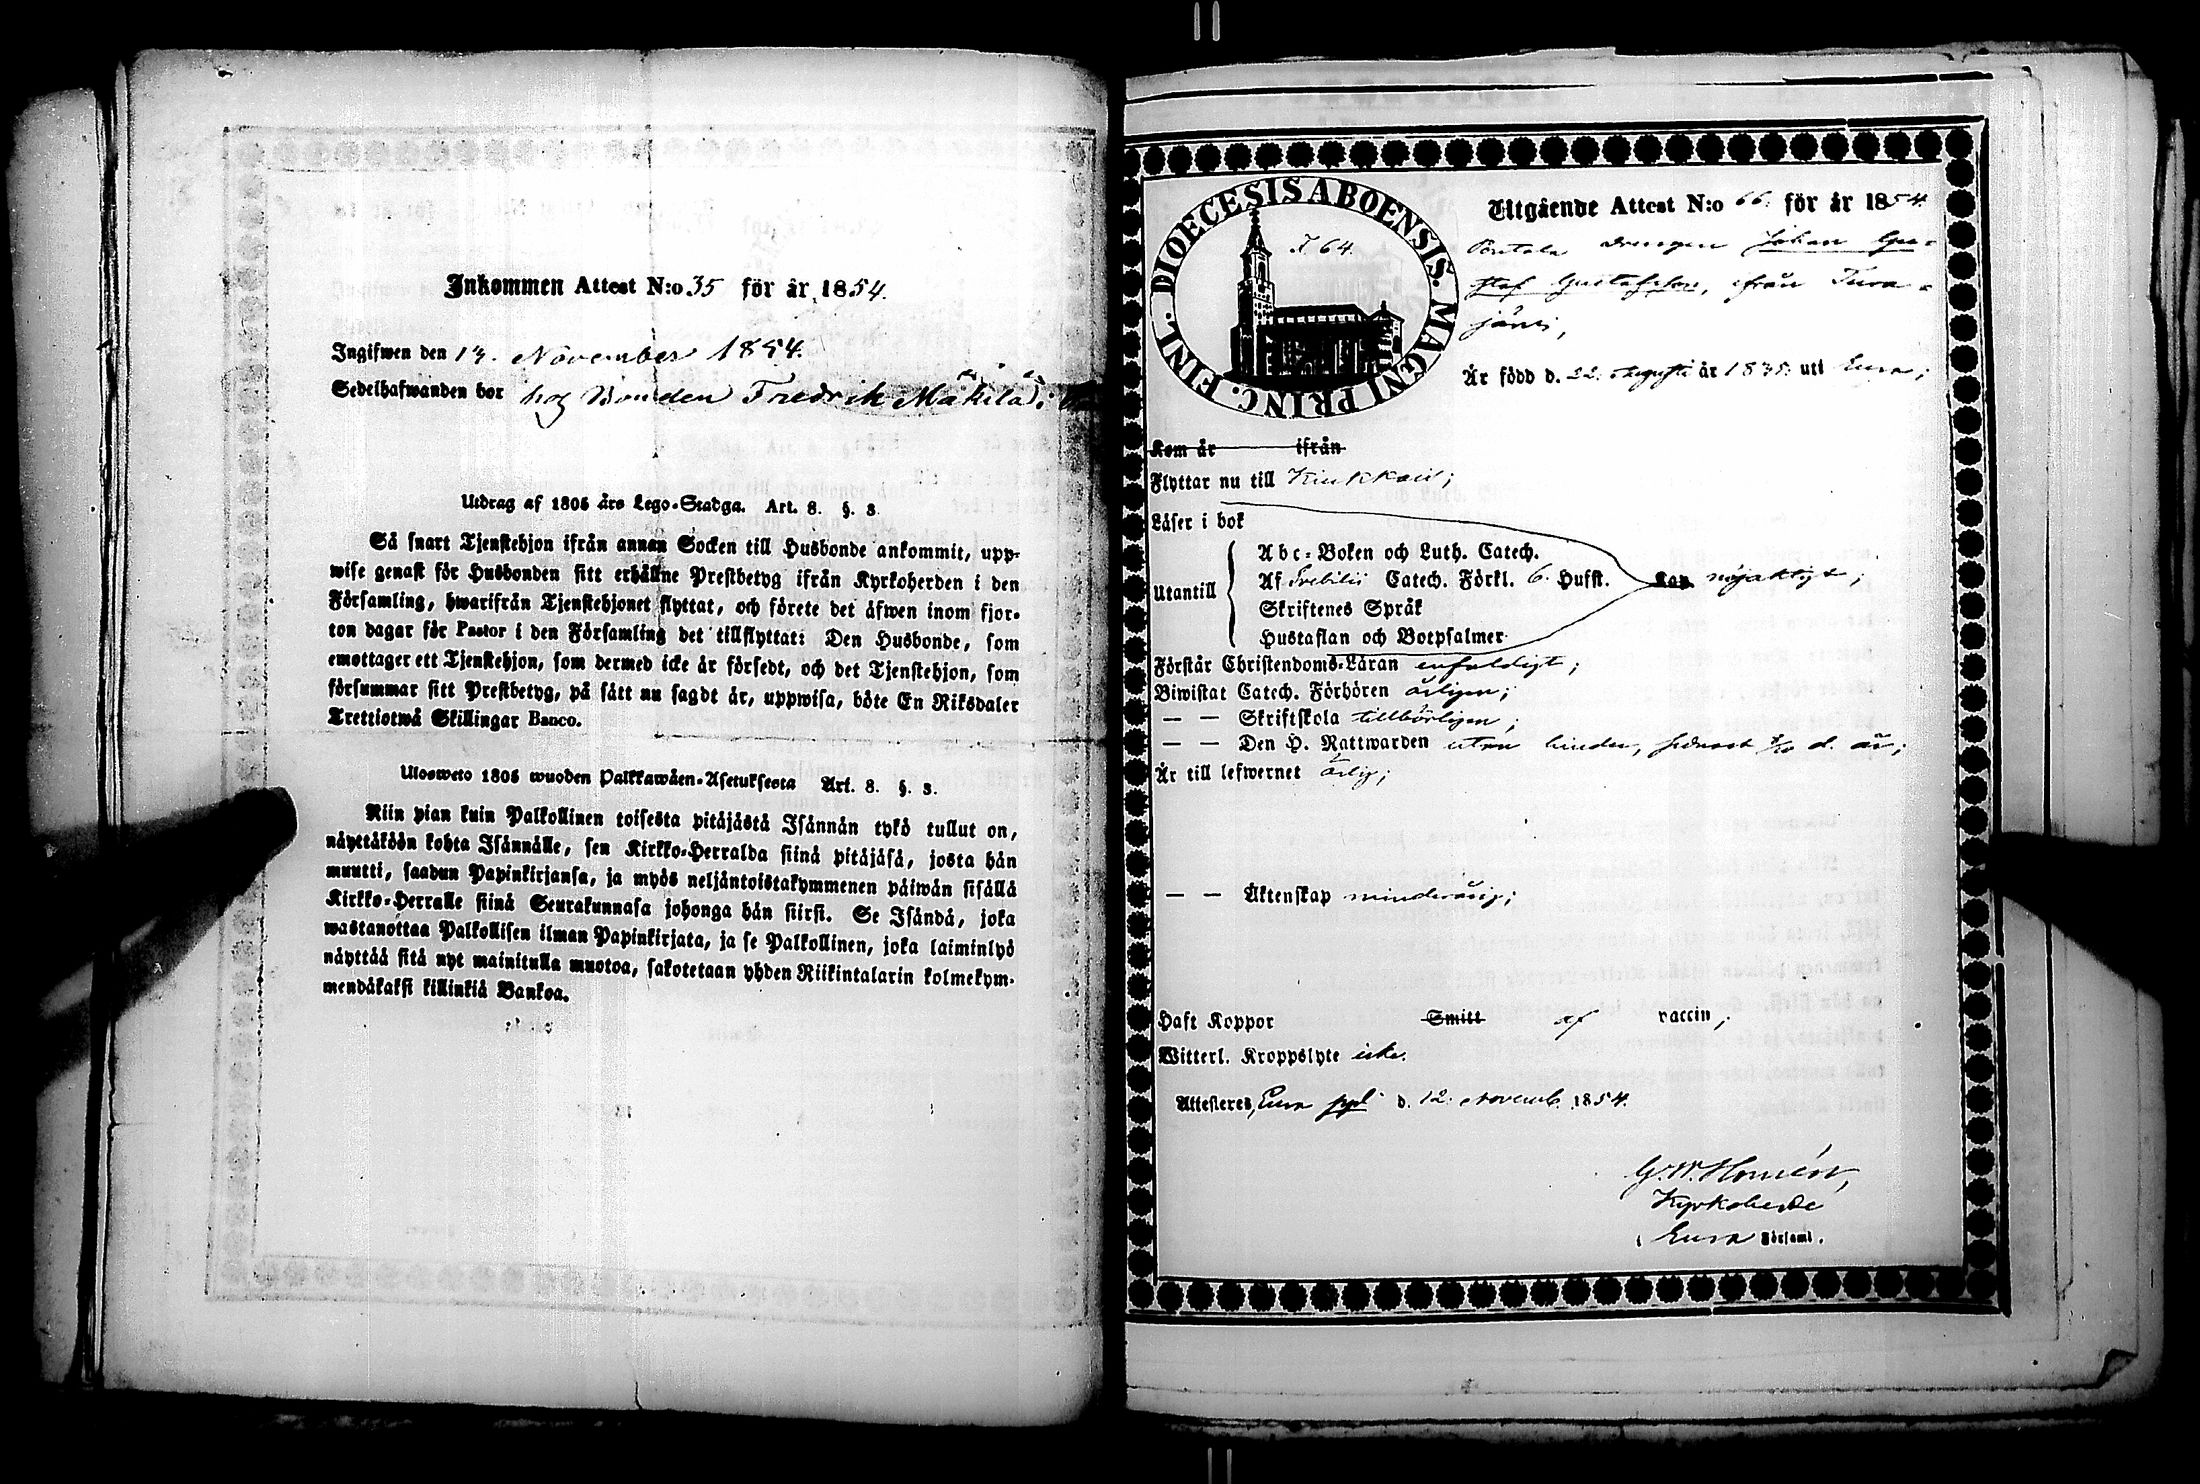 Inkommen Attest N:o 35 för år 1854.
Ingifwen den 14. November 1854.
Sedelhafwanden bor hos Bonden Fredrik Mäkilä i
Utdrag af 1805 års Lego-Stadga. Art. 8. §. 3.
Så snart Tjenstehjon ifrån annan Socken till Husbonde ankommit, upp-
wise genast för Husbonden sitt erhållne Prestbetyg ifrån Kyrkoherden i den
Församling, hwarifrån Tjenstehjonet flyttat, och förete det äfwen inom fjor-
ton dagar för Pastor i den Församling det tillflyttat: Den Husbonde, som
emottager ett Tjenstehjon, som dermed icke är försedt, och det Tjenstehjon, som
försummar sitt Prestbetyg, på sätt nu sagdt är, uppwisa, böte En Riksdaler
Trettiotwå Skillingar Banco.
Ulosweto 1805 wuoden Palkkawäen-Asetuksesta Art. 8. §. 3.
Niin pian kuin Palkollinen toisesta pitäjästä Isännän tykö tullut on,
näyttäköön kohta Isännälle, sen Kirkko-Herralda siinä pitäjäsä, josta hän
muutti, saadun Papinkirjansa, ja myös neljäntoistakymmenen päiwän sisällä
Kirkko-Herralle siinä Seurakunnasa johonga hän siirsi. Se Isändä, joka
wastanottaa Palkollisen ilman Papinkirjata, ja se Palkollinen, joka laiminlyö
näyttää sitä nyt mainitulla muotoa, sakotetaan yhden Riikintalarin kolmekym-
mendäkaksi killinkiä Bankoa.
DIOECESIS ABOENSIS. MAGNI PRINC. FINL.
F. 64.
Utgående Attest N:o 66. för år 1854.
drengen Johan Gu-
staf Gustafsson, ifrån Tura-
järvi,
Är född d. 22. Augusti år 1835. uti Eura;
Kom år ifrån
Flyttar nu till Kiukkais;
Läser i bok
Utantill
Abc-Boken och Luth. Catech.
Af Svebilii Catech. Förkl. 6. Hufst. Kan nöjaktigt;
Skriftenes Språk
Hustaflan och Botpsalmer
Förstår Christendoms-Läran enfaldigt;
Biwistat Catech. Förhören årligen;
— — Skriftskola tillbörligen;
— — Den H. Nattwarden utan hinder, senast d. år;
Är till lefwernet ärlig;
— — Äktenskap minderårig;
Haft Koppor Smitt af vaccin;
Witterl. Kroppslyte icke.
Attesteres, Eura d. 12. Novemb. 1854.
G. W. Homén,
Kyrkoherde
i Eura Församl.